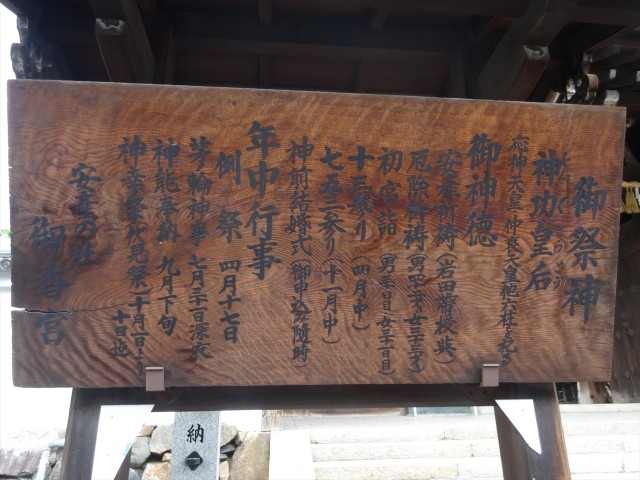 御祭神
神功皇后
じんぐうこうごう
応神天皇・仲哀天皇他六社を祀る
御神徳
安産祈祷（岩田帯授与）
厄除祈祷
初宮詣
十三参り（四月中）
七五三参り（十一月中）
神前結婚式（御申込み随時）
年中行事
例祭 四月十七日
茅輪神事 七月三十一日深夜
神能奉納 九月下旬
神幸祭伏見祭（十月一日より
十日迄
安産の社
御香宮
納